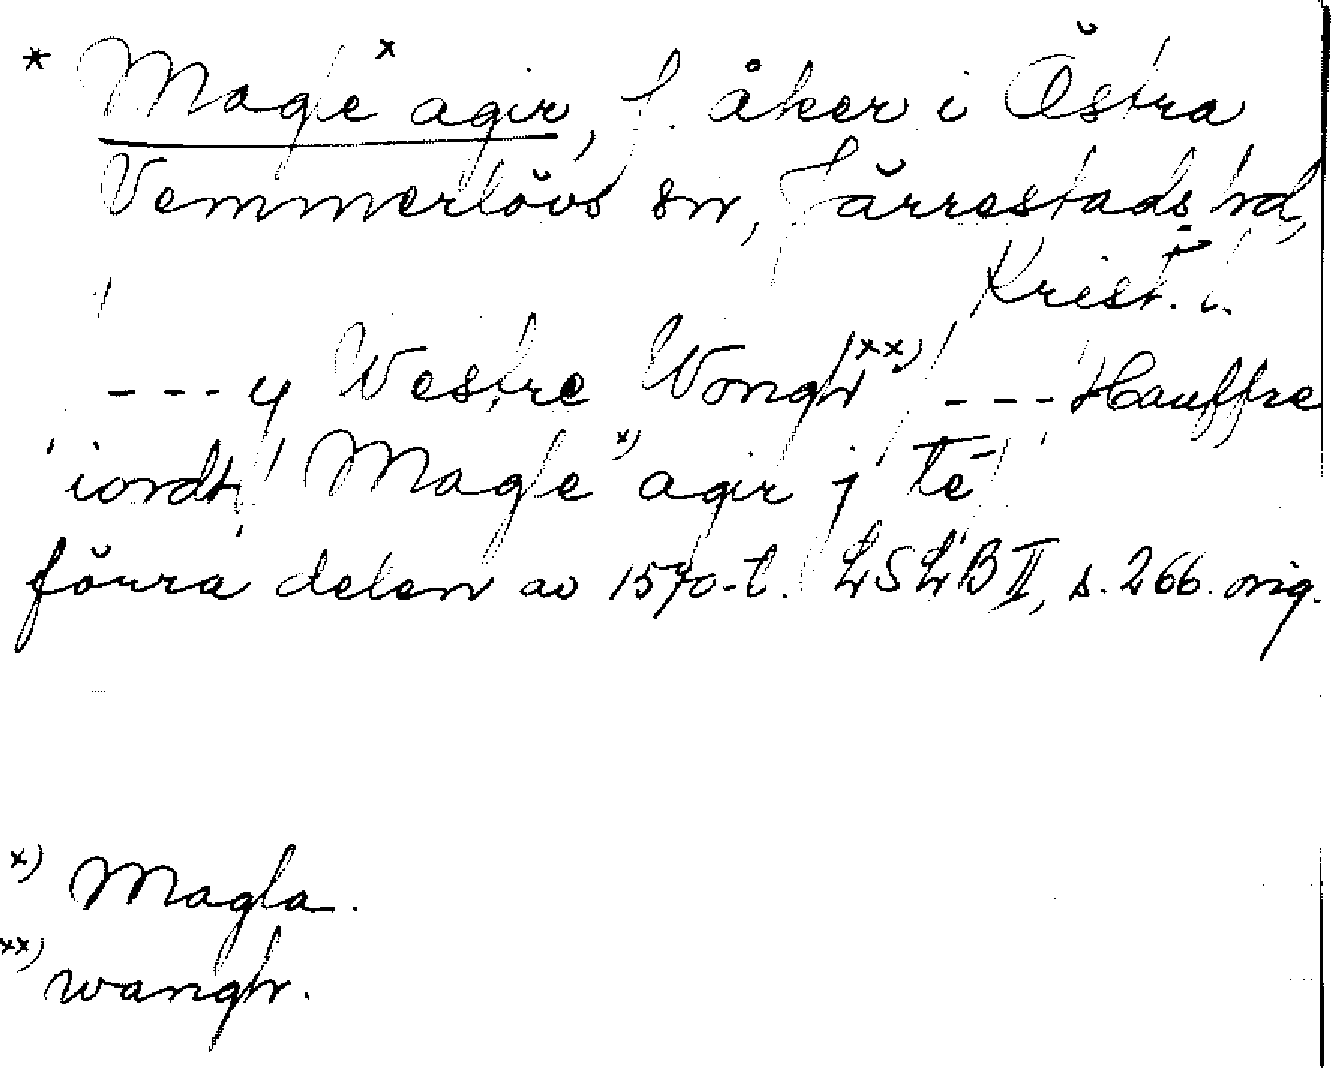 * Magle ˣ agir, f. åker i Östra
Vemmerlövs sn, Järrestads hd,
Krist. l.
- - - y Vestre Vongh ˣˣ⁾ - - - Hauffre
iordt Magle ˣ⁾ agir j Te
förra delen av 1570-t. LSLB II, s. 266. orig.
ˣ⁾ Magla.
ˣˣ⁾ wangh.